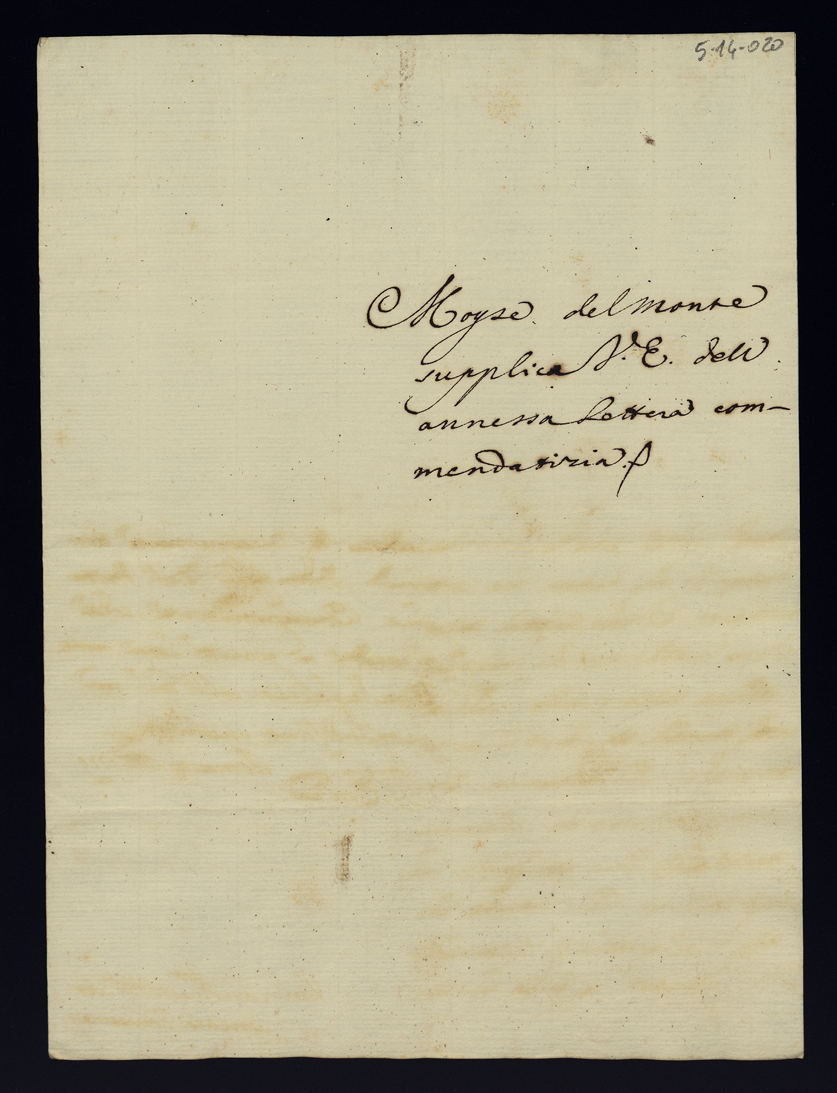 5-14-020
Moyse del monte
supplica V.ª E. dell
annessa lettera com-
mendatizia.